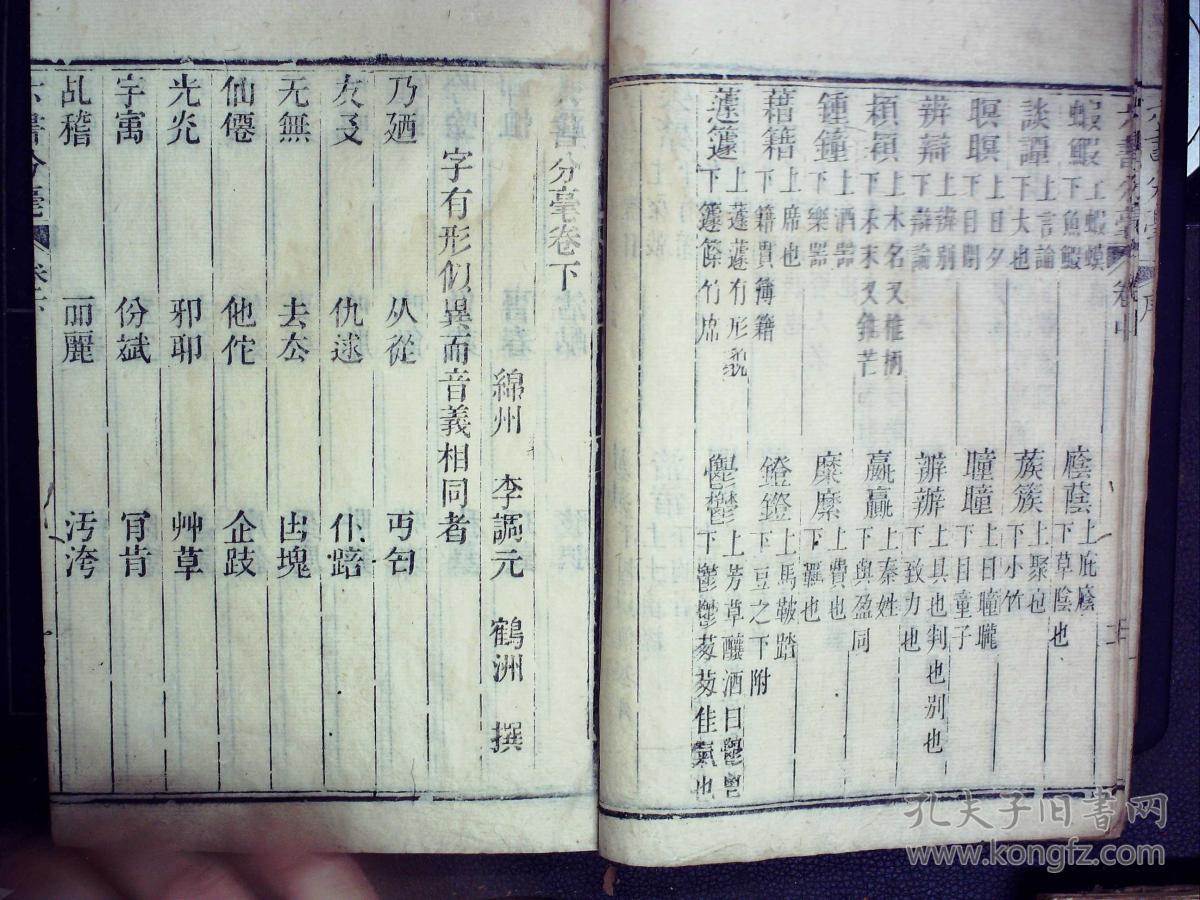 蝦鰕 上蝦蟆 下魚鰕
蔭 上庇 下草陰也
談譚 上言論 下大也
蔟簇 上聚也 下小竹
暝瞑 上日夕 下目閉
曈瞳 上日曈曨 下目童子
辨辯 上辨別 下辯論
上具也判也别也 下致力也
穎 上木名又椎柄 下禾末又錐芒
嬴贏 上秦姓 下與盈同
鍾鐘 上酒器 下樂器
糜縻 上費也 下也
藉籍 上席也 下籍貫簿籍
鐙 上馬鞍踏 下豆之下附
蘧籧 上蘧蘧有形貌 下籧篨竹席
鬱 上芳草釀酒曰 下鬱鬱芬芬佳氣也
六書分毫卷中
六書分毫卷下
綿州 李調元 鶴洲 撰
字有形似異而音義相同者
乃迺 从從 丏匄
友 仇逑 仆踣
无無 去厺 凷塊
仙僊 他佗 企跂
光灮 邪耶 艸草
宇㝢 份斌 肎肯
乩稽 丽麗 汚洿
六書分毫 卷下
孔夫子旧书网
www.kongfz.com